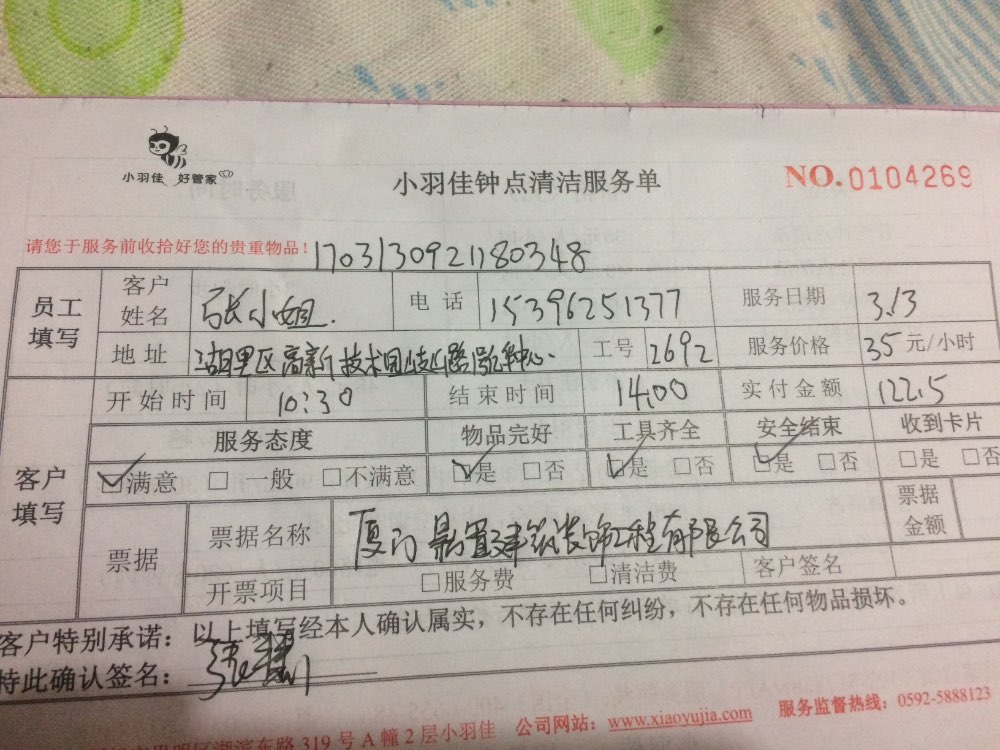 小羽佳 好管家
小羽佳钟点清洁服务单
NO.0104269
请您于服务前收拾好您的贵重物品！
1703130921180348
员工填写 客户姓名 张小姐. 电话 15396251377 服务日期 3.13
地址 湖里区高新技术园 中心 工号 2692 服务价格 35 元/小时
客户填写 开始时间 10:30 结束时间 14:00 实付金额 122.5
服务态度 物品完好 工具齐全 安全结束 收到卡片
☑满意 □一般 □不满意 ☑是 □否 ☑是 □否 ☑是 □否 □是 □否
票据 票据名称 厦门 置建筑装饰工程有限公司 票据金额
开票项目 □服务费 □清洁费 客户签名
客户特别承诺：以上填写经本人确认属实，不存在任何纠纷，不存在任何物品损坏。
特此确认签名：张
区湖滨东路 319 号 A 幢 2 层小羽佳 公司网站：www.xiaoyujia.com 服务监督热线：0592-5888123